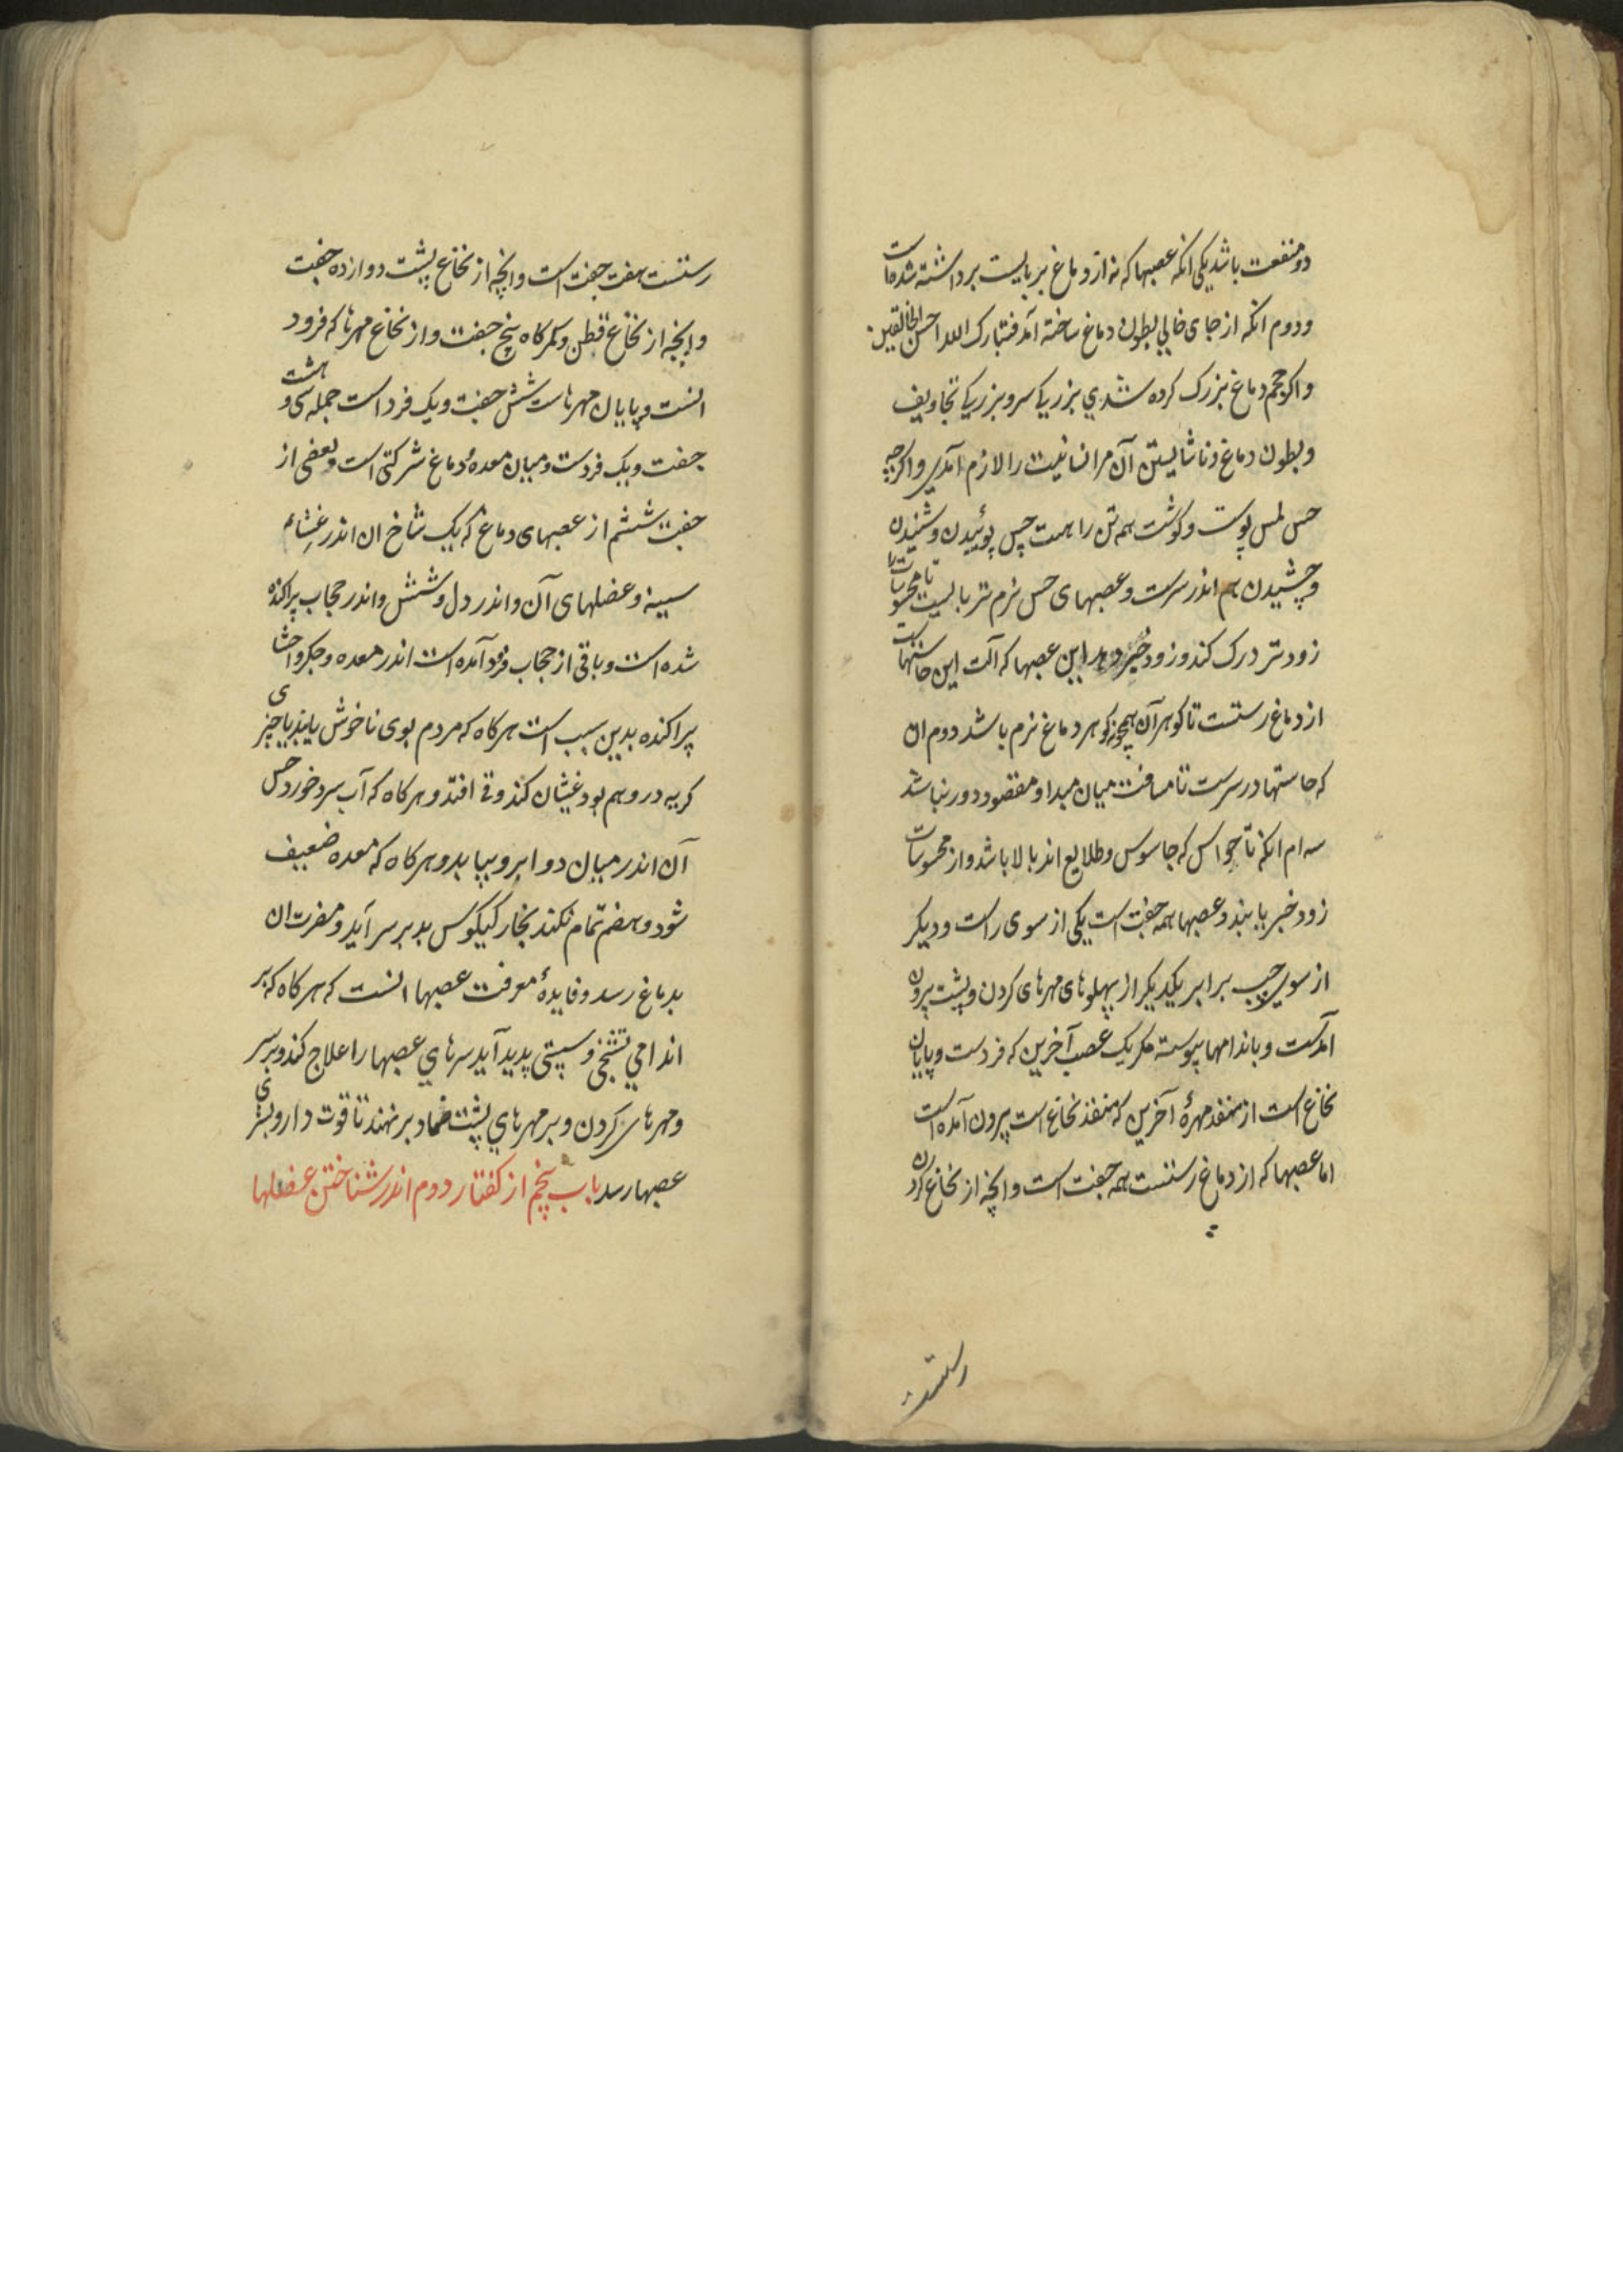 دو منفعت باشد یکی انکه عصبها که نه از دماغ بر بایست برداشته شده است
ودوم انکه از جای خالی بطون دماغ ساخته آمد فتبارک الله احسن الخالقین
واکر حجم دماغ بزرک کرده شدی بزرکی سر وبزرکی تجاویف
وبطون دماغ وناشایستن آن مر انسانیت را لازم آمدی واکرچه
حس لمس پوست وکوشت همه تن را هست حس بوئیدن وشنیدن
وچشیدن هم اندر سرست وعصبهای حس نرم تر بایست تا محسوسات را
زودتر درک کند وزود خبر دهد این عصبها که آلت این حاستهاست
از دماغ رستست تا کوهر آن همچون کوهر دماغ نرم باشد دوم ان
که حاستها در سرست تا مسافت میان مبدا ومقصود دور نباشد
سه ام انکه تا حواس که جاسوس وطلایع اند بالا باشد واز محسوسات
زود خبر یابند وعصبها همه جفت است یکی از سوی راست ودیکر
از سوی چپ برابر یکدیکر از پهلوهای مهرهای کردن وپشت بیرون
آمدست وباندامها پیوسته مکر یک عصب آخرین که فردست وپایان
نخاع است از منفذ مهرۀ آخرین که منفذ نخاع است بیرون آمده است
اما عصبها که از دماغ رستست همه جفت است وانچه از نخاع کردن
رستست
رستست هفت جفت است وانچه از نخاع پشت دوازده جفت
وانچه از نخاع قطن وکمرکاه پنج جفت واز نخاع مهرها که فرود
انست وپایان مهرهاست شش جفت ویک فرد است جمله سی و هشت
جفت ویک فردست ومیان معده ودماغ شرکتی است وبعضی از
جفت ششم از عصبهای دماغ که یک شاخ ان اندر غشاء
سینه وعضلهای آن واندر دل وشش واندر حجاب پراکنده
شده است وباقی از حجاب فرود آمده است اندر معده وجکر واحشا
پراکنده بدین سبب است هرکاه که مردم بوی ناخوش یابند یا چیزی
کریه در وهم بود غثیان کند وقی افتد وهرکاه که آب سرد خورد حس
آن اندر میان دو ابرو بیابد وهرکاه که معده ضعیف
شود وهضم تمام نکند بخار کیکوس بد بر سر آید ومضرت ان
بدماغ رسد وفایدۀ معرفت عصبها انست که هرکاه که بر
اندامی تشنجی وسستی پدید آید سرهای عصبها را علاج کند وبر سر
ومهرهای کردن وبر مهرهای پشت ضماد برنهند تا قوت دارو
عصبها رسد باب پنجم از کفتار دوم اندر شناختن عضلها